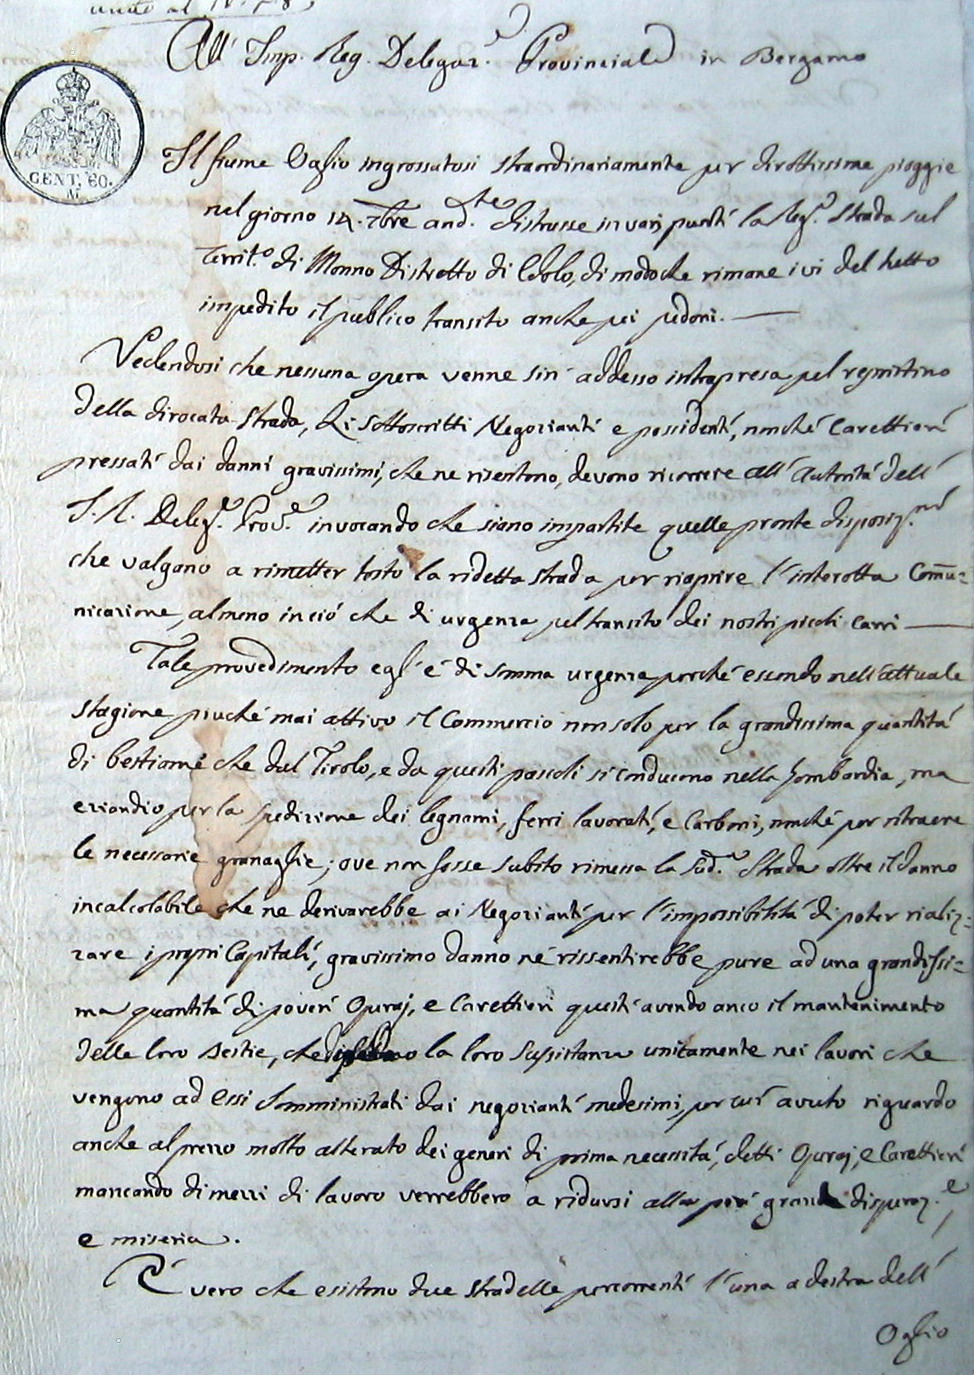 unito al N. 178
All' Imp. Reg. Delegaz.e Provinciale in Bergamo
CENT. 60.
Il fiume Oglio ingrossatosi straordinariamente per dirottissime pioggie
nel giorno 14. 7bre and.te distrusse in varj punti la Reg.a Strada sul
Territ.o di Monno Distretto di Edolo, di modo che rimane ivi del tutto
impedito il publico transito anche pei pedoni.
Vedendosi che nessuna opera venne sin' addesso intrapresa pel ripristino
della dirocata strada, Li sottoscritti Negozianti e possidenti, nonché Carettieri
pressati dai danni gravissimi, che ne risentono, devono ricorrere all' Autorità dell'
I. R. Deleg.e Prov.e invocando che siano impartite quelle pronte disposiz.ni
che valgano a rimetter tosto la ridetta strada per riaprire l'interotta Comu=
nicazione, almeno in ciò che di urgenza pel transito dei nostri picoli Carri
Tale provedimento egl' è di somma urgenza perché essendo nell'attuale
stagione piuché mai attivo il Commercio non solo per la grandissima quantità
di bestiame che dal Tirolo, e da questi pascoli si conducono nella Lombardia, ma
eziandio per la spedizione dei legnami, ferri lavorati, e Carboni, nonché per ritraere
le necessarie granaglie; ove non fosse subito rimessa la sud.a Strada oltre il danno
incalcolabile che ne derivarebbe ai Negozianti per l'impossibilità di poter rializ=
zare i proprj Capitali, gravissimo danno ne rissentirebbe pure ad una grandissi=
ma quantità di poveri Operaj, e Carettieri questi avendo anco il mantenimento
delle loro Bestie, che la loro sussistanza unitamente nei lavori che
vengono ad Essi somministrati dai negozianti medesimi, per cui avuto riguardo
anche al prezzo molto alterato dei generi di prima necessità, detti Operaj, e Carettieri
mancando di mezzi di lavoro verrebbero a ridursi alla più grande disperaz.e
e miseria.
È vero che esistono due stradelle percorrenti l'una a destra dell'
Oglio